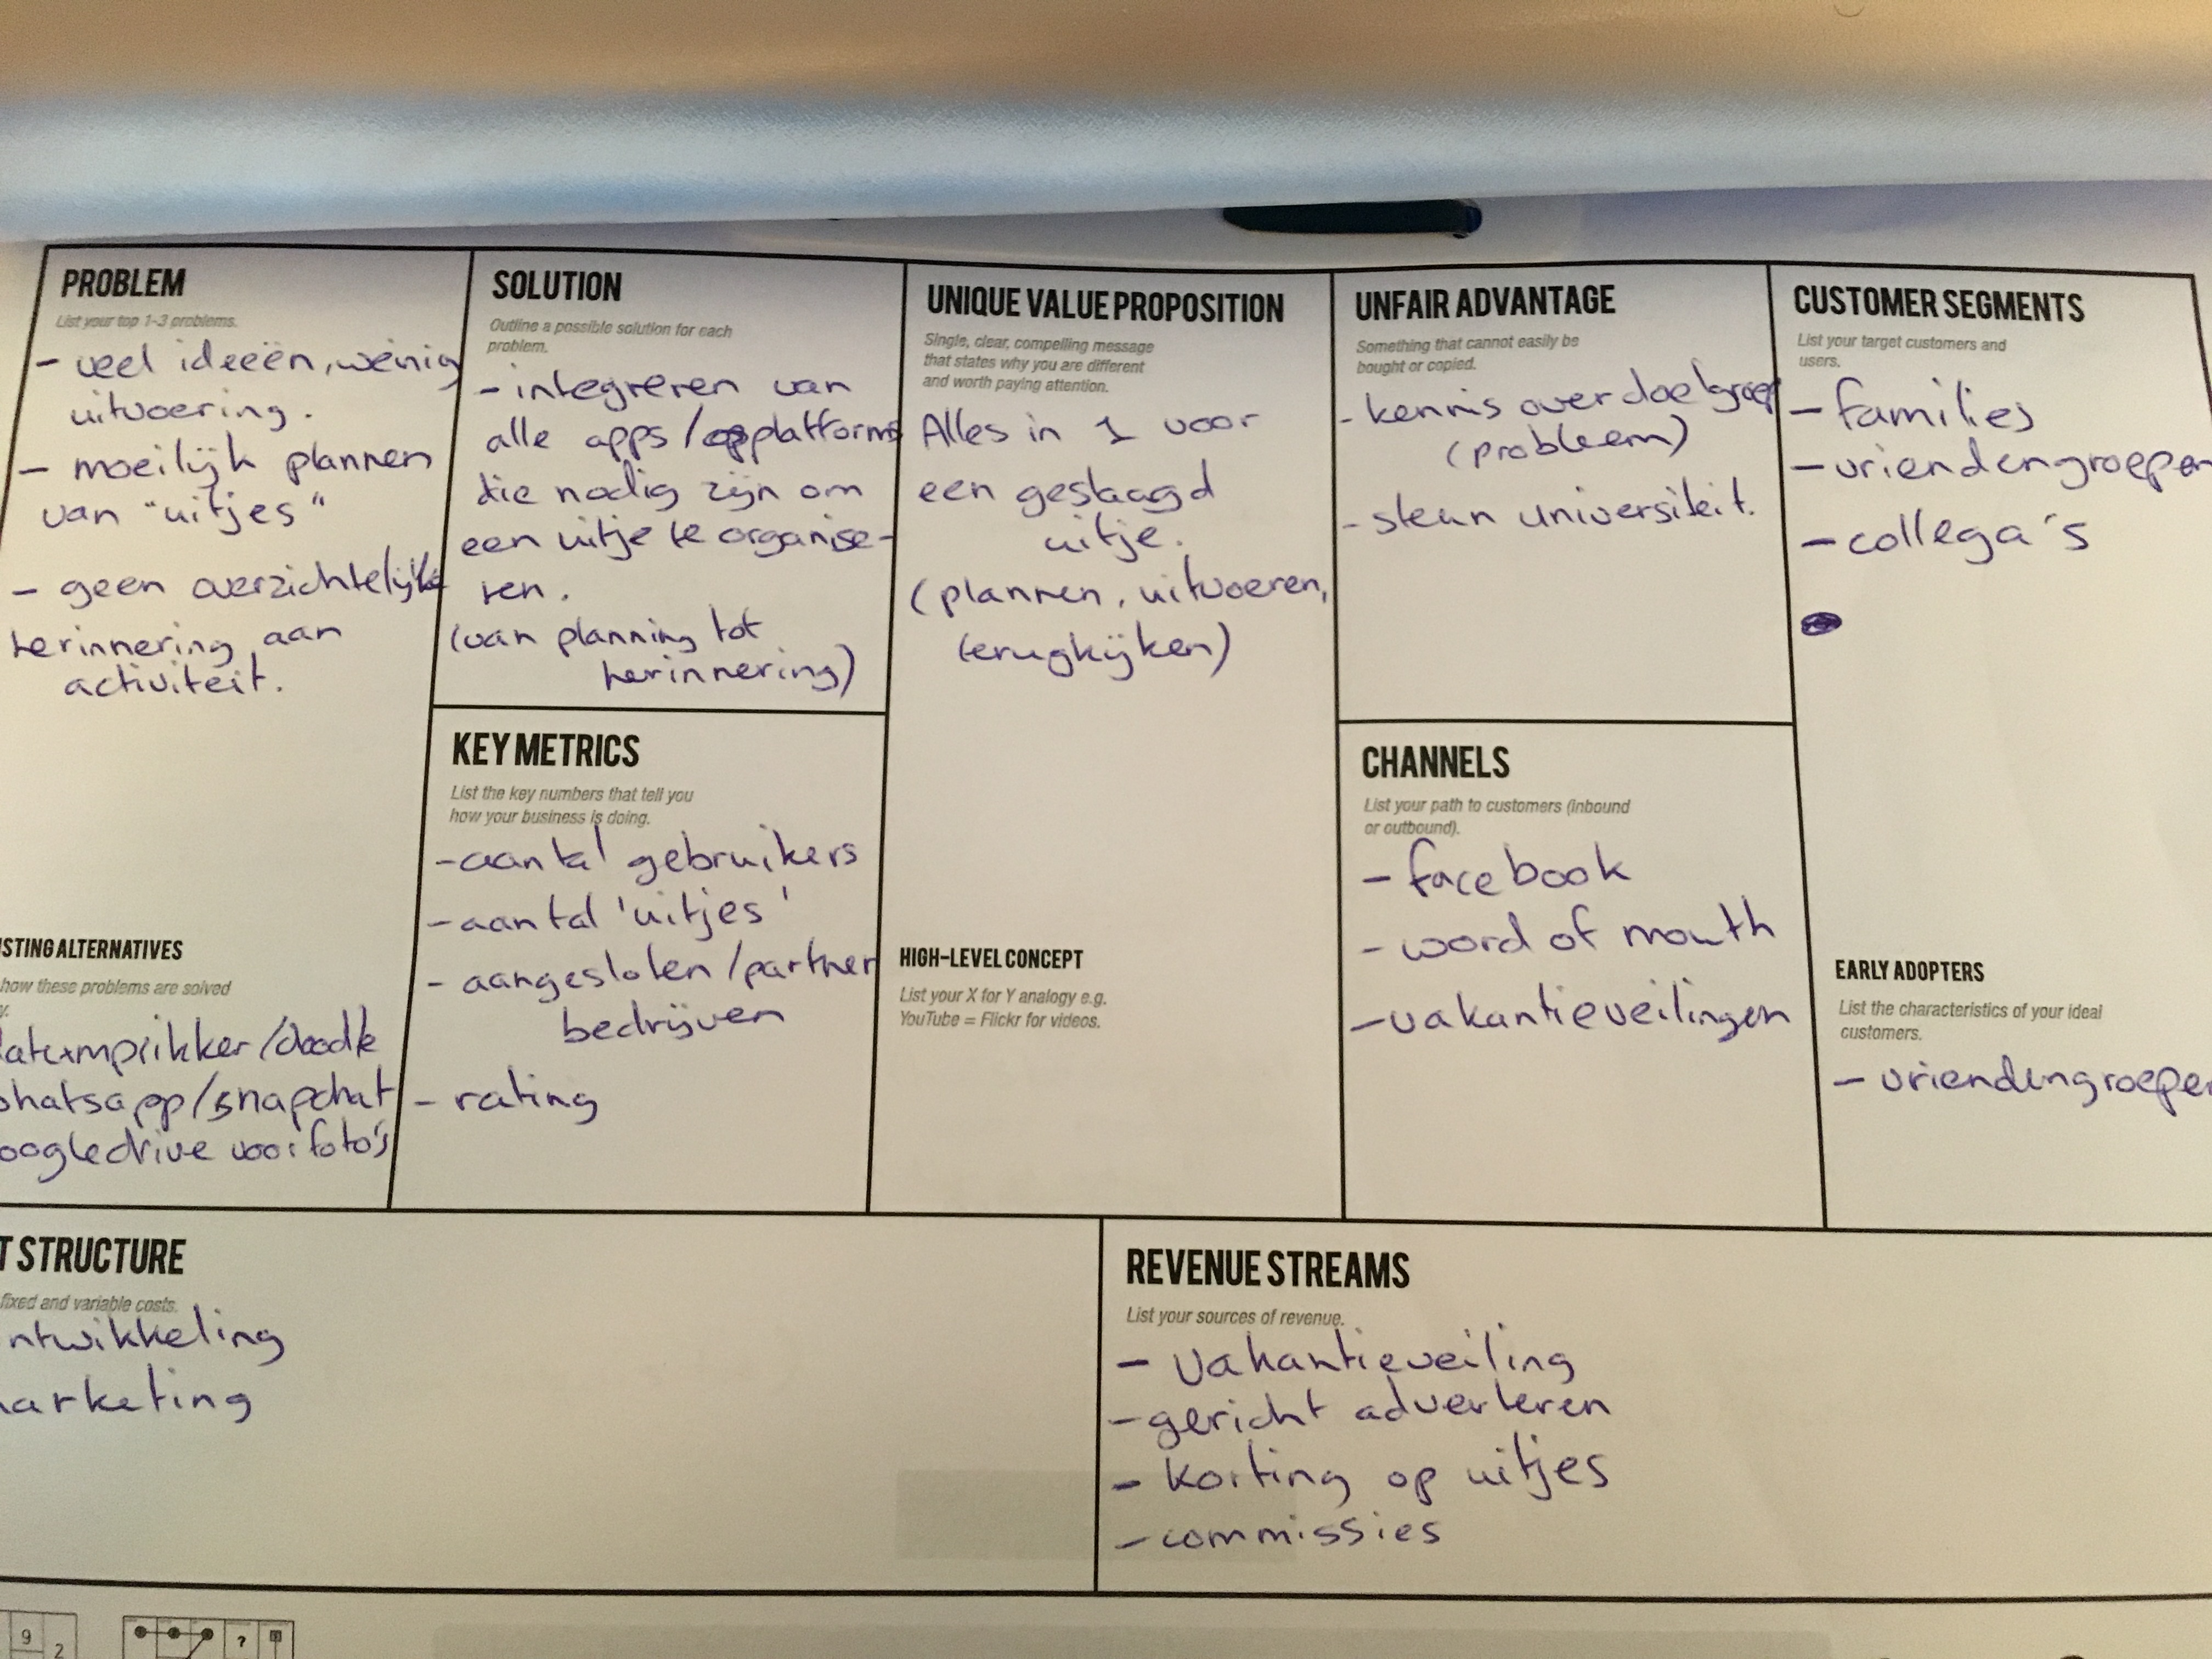 PROBLEM
List your top 1-3 problems.
- veel ideeën, weinig
uitvoering.
- moeilijk plannen
van "uitjes"
- geen overzichtelijke
herinnering aan
activiteit.
STING ALTERNATIVES
how these problems are solved
y.
datumprikker/doodle
whatsapp/snapchat
oogledrive voor foto's
SOLUTION
Outline a possible solution for each
problem.
- integreren van
alle apps/platforms
die nodig zijn om
een uitje te organise-
ren.
(van planning tot
herinnering)
KEY METRICS
List the key numbers that tell you
how your business is doing.
- aantal gebruikers
- aantal 'uitjes'
- aangesloten/partner
bedrijven
- rating
UNIQUE VALUE PROPOSITION
Single, clear, compelling message
that states why you are different
and worth paying attention.
Alles in 1 voor
een geslaagd
uitje.
(plannen, uitvoeren,
terugkijken)
HIGH-LEVEL CONCEPT
List your X for Y analogy e.g.
YouTube = Flickr for videos.
UNFAIR ADVANTAGE
Something that cannot easily be
bought or copied.
- kennis over doelgroep
(probleem)
- steun universiteit.
CHANNELS
List your path to customers (inbound
or outbound).
- facebook
- word of mouth
- vakantieveilingen
CUSTOMER SEGMENTS
List your target customers and
users.
- families
- vriendengroepen
- collega's
EARLY ADOPTERS
List the characteristics of your ideal
customers.
- vriendengroepen
T STRUCTURE
fixed and variable costs.
ntwikkeling
arketing
REVENUE STREAMS
List your sources of revenue.
- vakantieveiling
- gericht adverteren
- korting op uitjes
- commissies
9
2
?